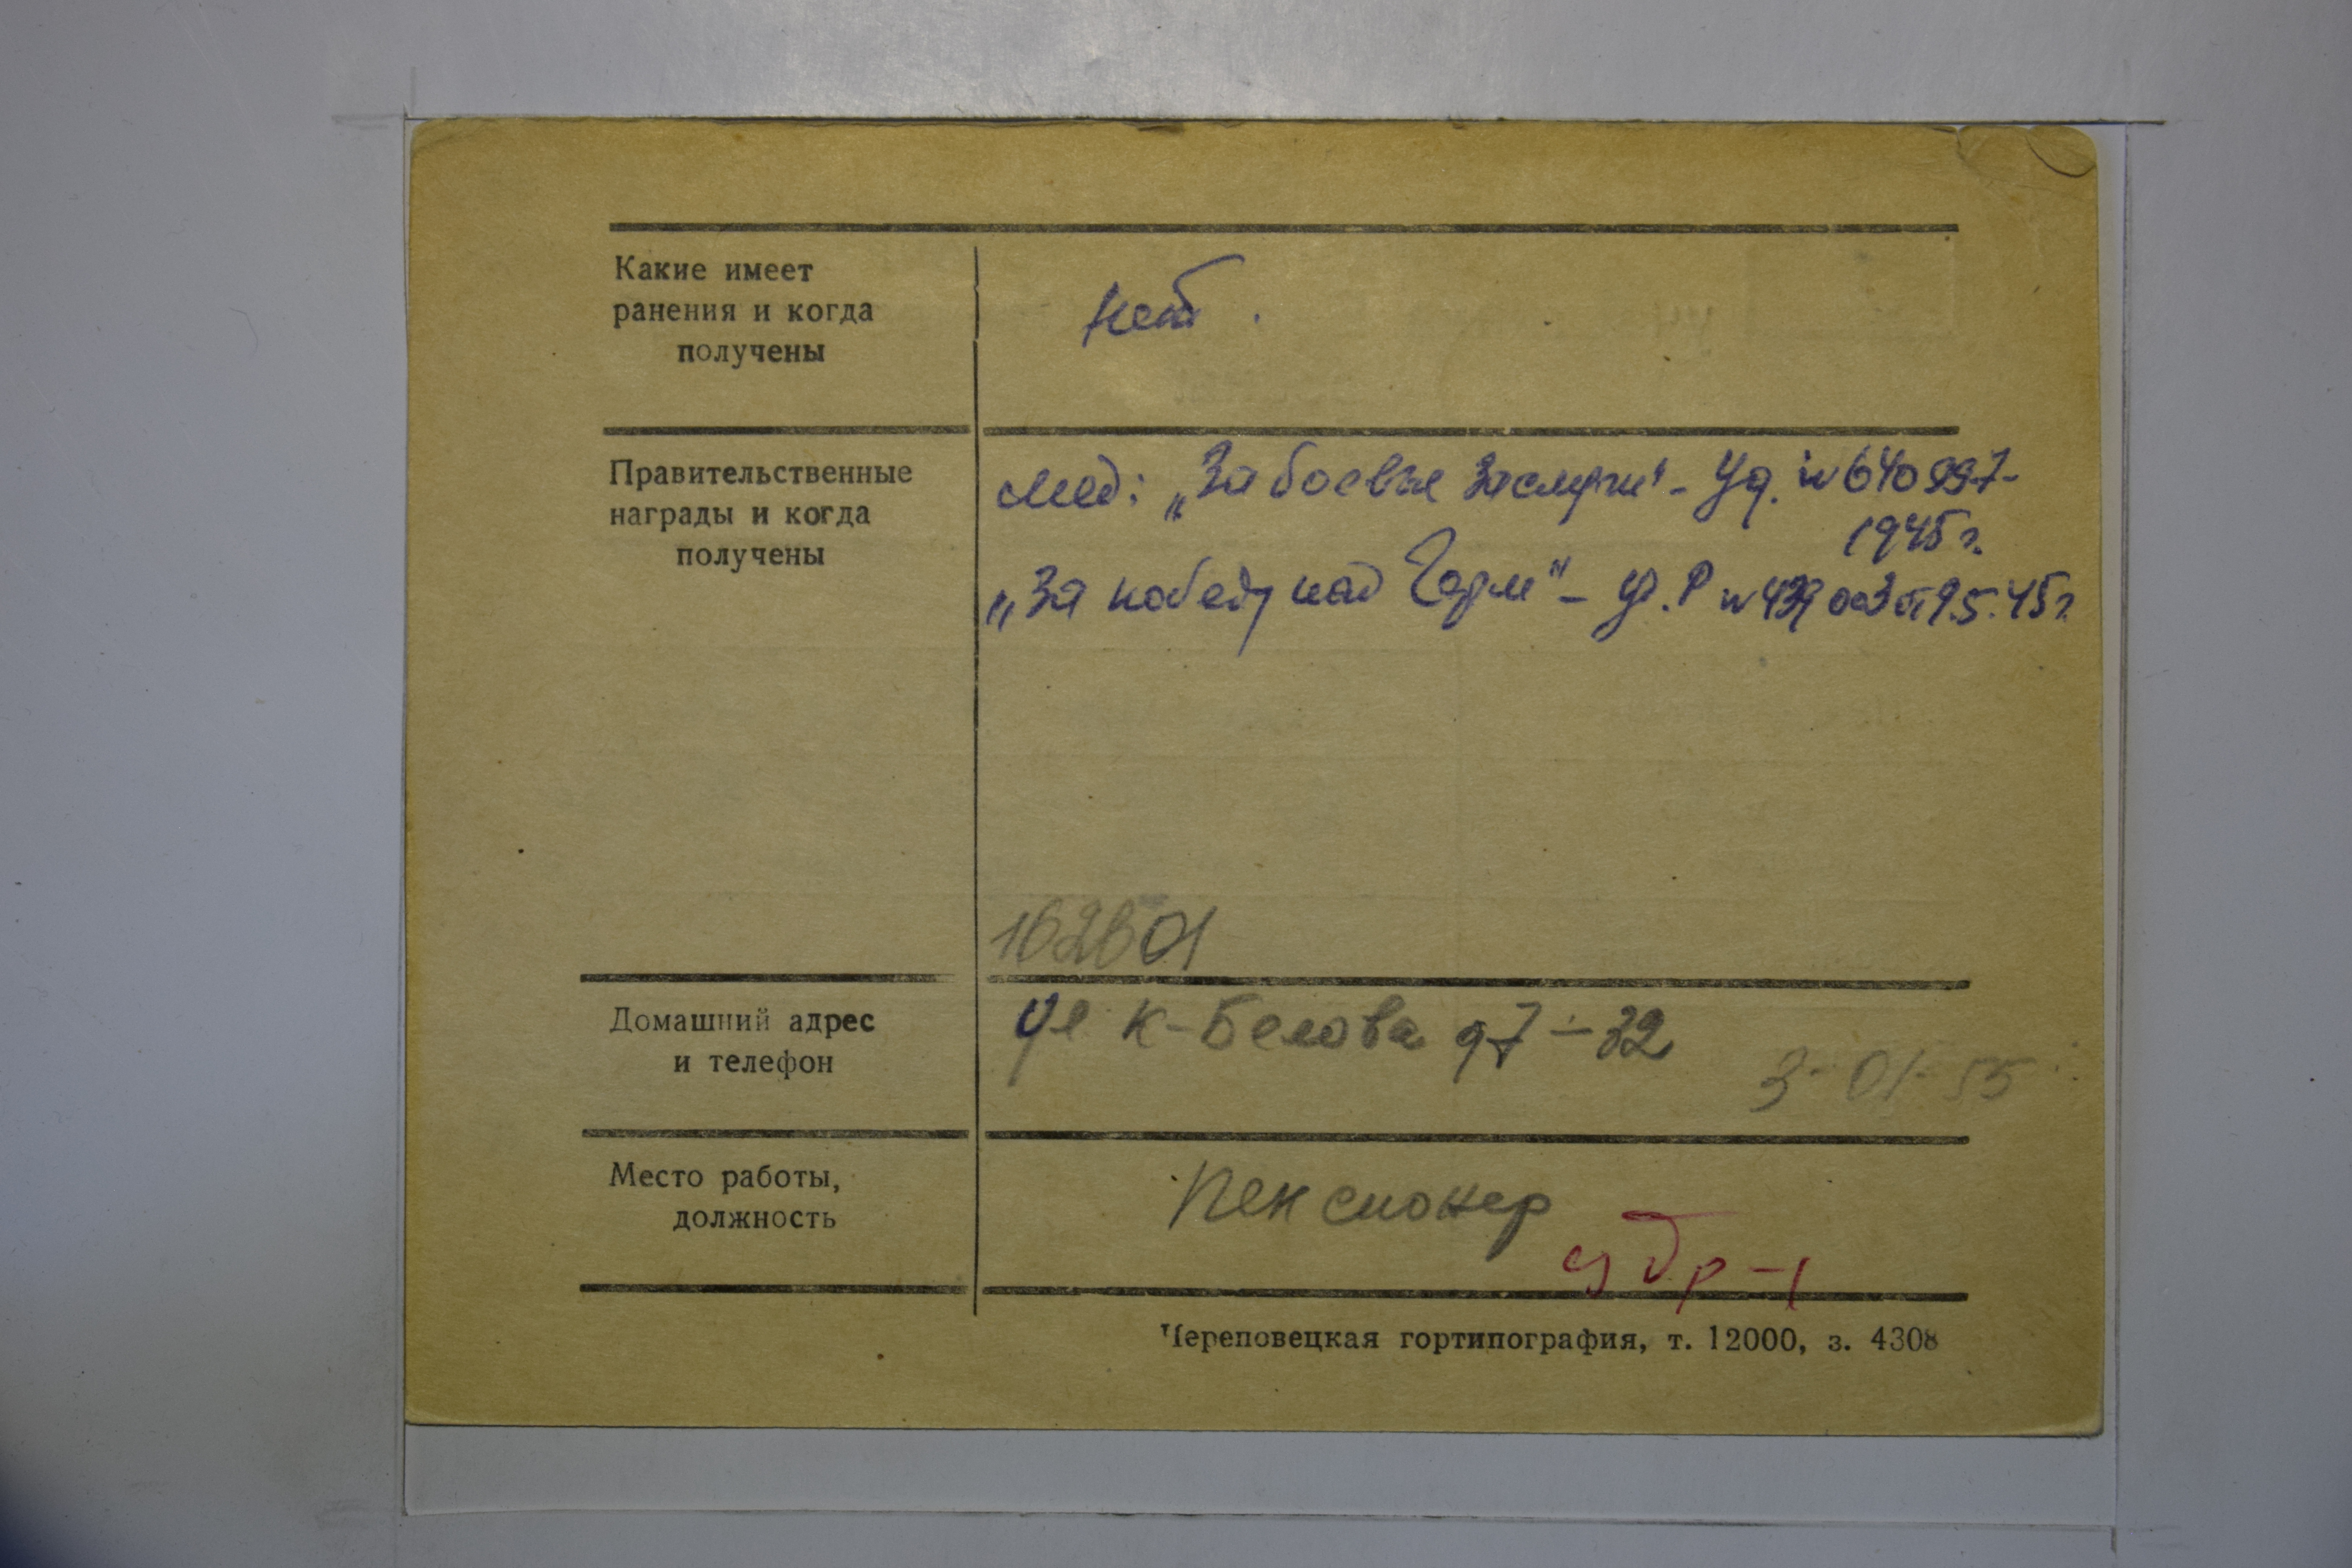 Какие имеет
ранения и когда
получены
нет.
Правительственные
награды и когда
получены
мед: „За боевые заслуги" - Уд. № 640997-
1945 г.
„За победу над Герм" - уд. Р № 439003 от 9.5.45 г.
162601
Домашний адрес
и телефон
ул К-Белова д7-32
3-01-55
Место работы,
должность
Пенсионер
Череповецкая гортипография, т. 12000, з. 4308